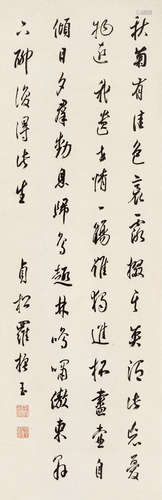 秋菊有佳色裛露掇其英汎此忘憂
物遠我遺世情一觴雖獨進杯盡壺自
傾日夕群動息歸鳥趣林鳴嘯傲東軒
下聊復得此生
貞松羅振玉